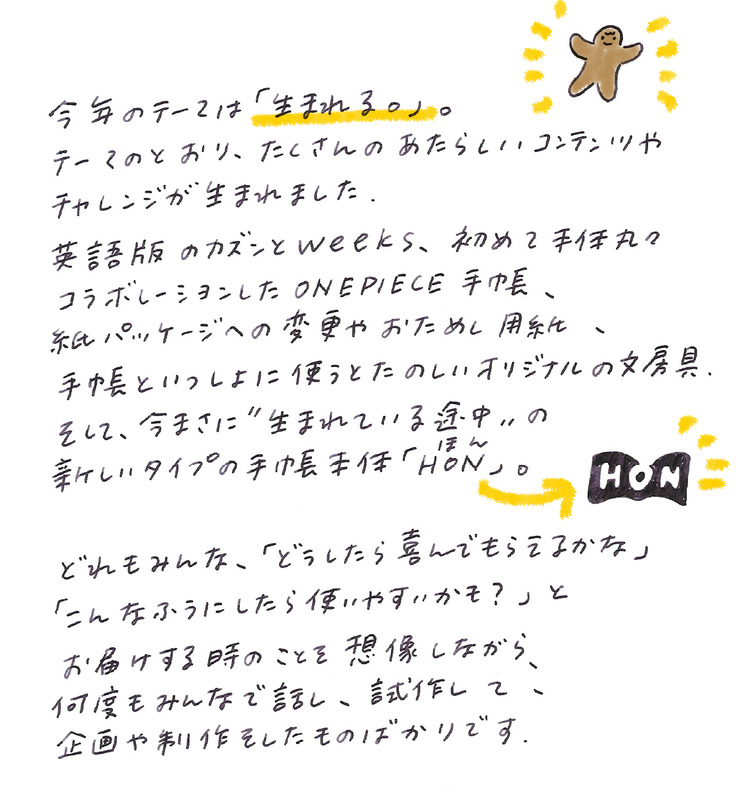 今年のテーマは「生まれる。」。
テーマのとおり、たくさんのあたらしいコンテンツや
チャレンジが生まれました.
英語版のカズンとweeks、初めて本体丸々
コラボレーションしたONEPIECE手帳、
紙パッケージへの変更やおためし用紙、
手帳といっしょに使うとたのしいオリジナルの文房具.
そして、今まさに"生まれている途中"の
ほん
新しいタイプの手帳本体「HON」。
HON
どれもみんな、「どうしたら喜んでもらえるかな」
「こんなふうにしたら使いやすいかも?」と
お届けする時のことを想像しながら、
何度もみんなで話し、試作して、
企画や制作をしたものばかりです.